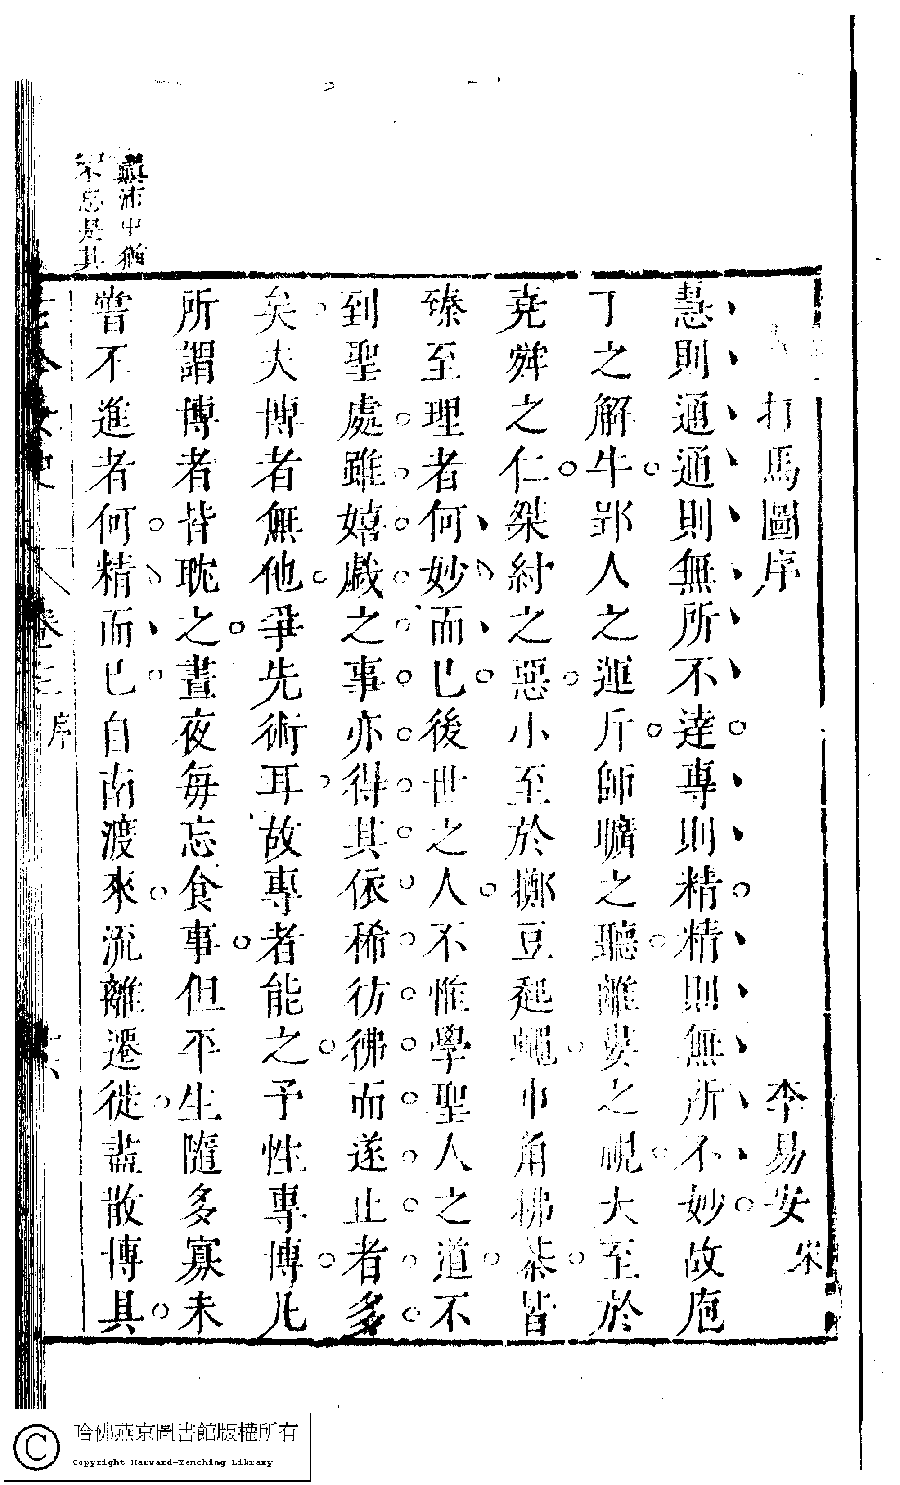 打馬圖序
李易安
宋
慧則通通則無所不達專則精精則無所不妙故庖
丁之解牛郢人之運斤師曠之聽離婁之視大至於
堯舜之仁桀紂之惡小至於擲豆起蠅巾角拂棊皆
臻至理者何妙而已後世之人不惟學聖人之道不
到聖處雖嬉戲之事亦得其依稀彷彿而遂止者多
矣夫博者無他爭先術耳故專者能之予性專博凡
所謂博者皆耽之晝夜每忘食事但平生隨多寡未
嘗不進者何精而已自南渡來流離遷徙盡散博具
顛沛中猶
不忘是其
卷三
序
哈佛燕京圖書館版權所有
Copyright Harvard-Yenching Library